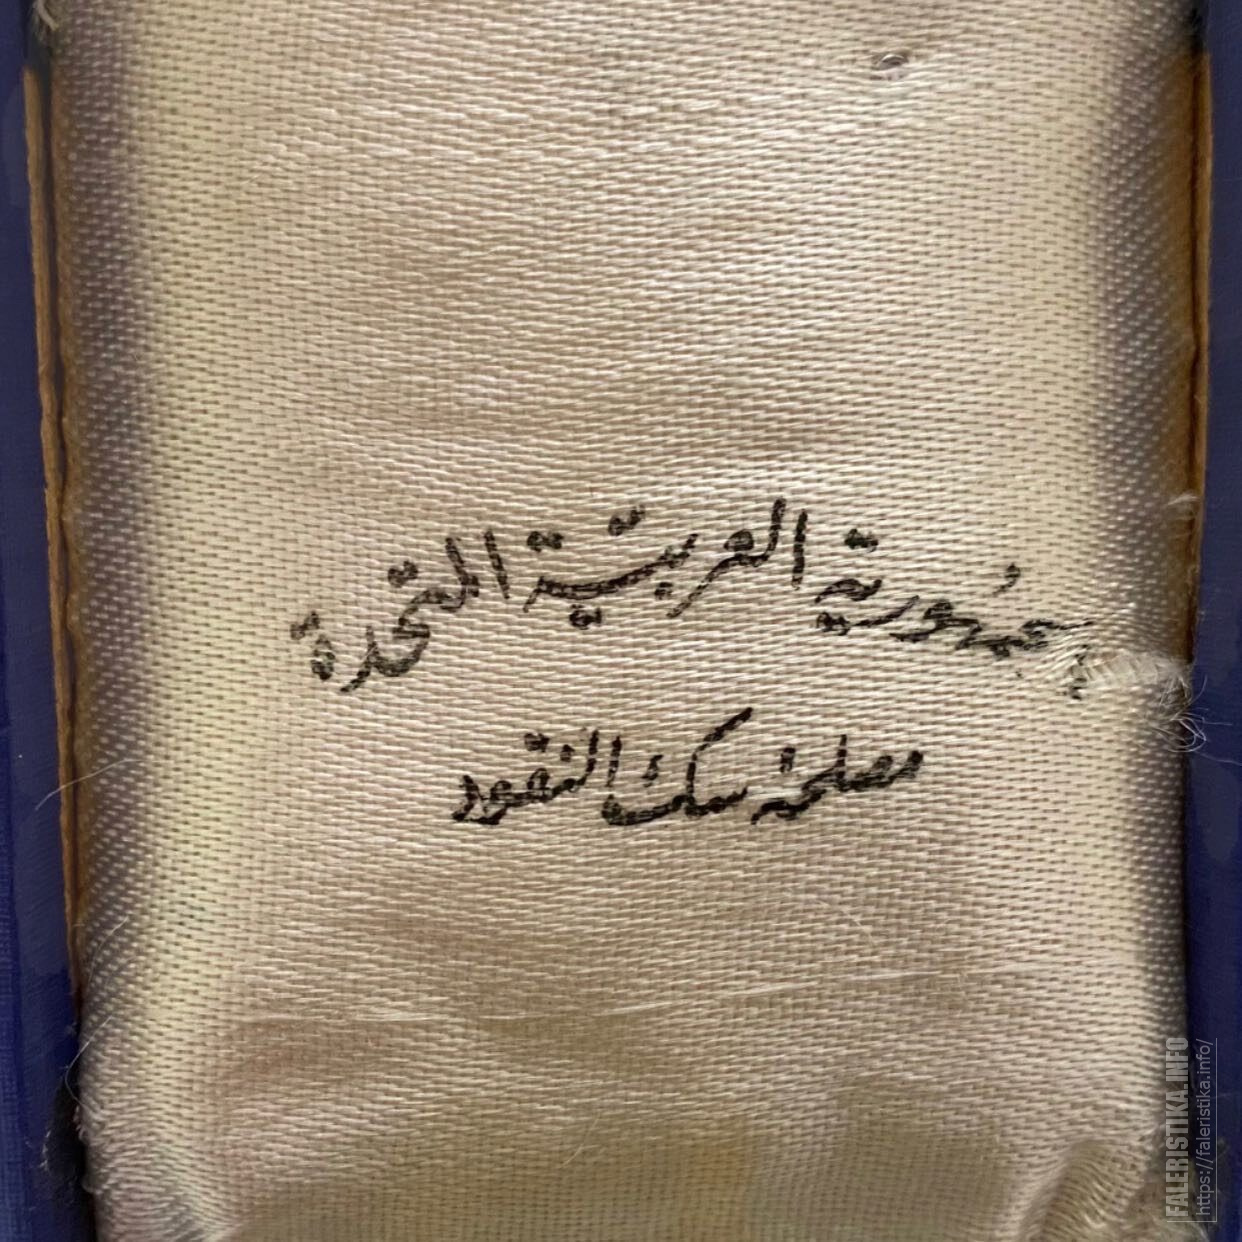 جمهورية العربيّة المتحدة
مصلحة سك النقود
FALERISTIKA.INFO
https://faleristika.info/